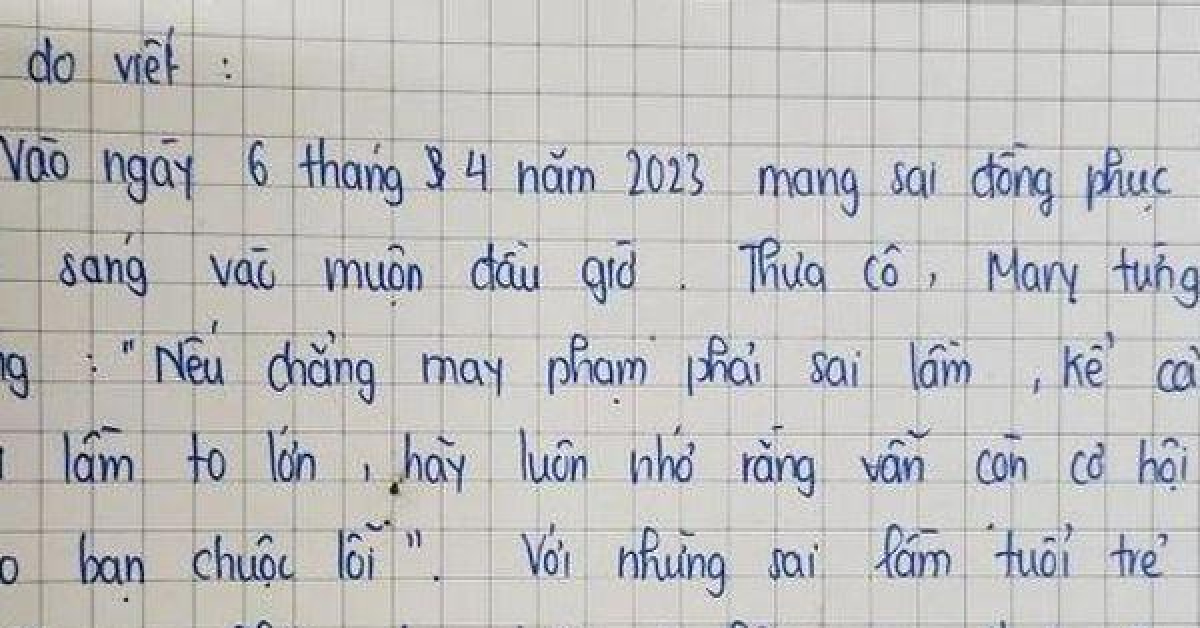 do viết :
Vào ngày 6 tháng 4 năm 2023 mang sai đồng phục
sang vào muộn đầu giờ . Thưa cô , Mary từng
: "Nếu chẳng may phạm phải sai lầm , kể cả
lầm to lớn , hãy luôn nhớ rằng vẫn còn cơ hội
bạn chuộc lỗi". Với những sai lầm tuổi trẻ